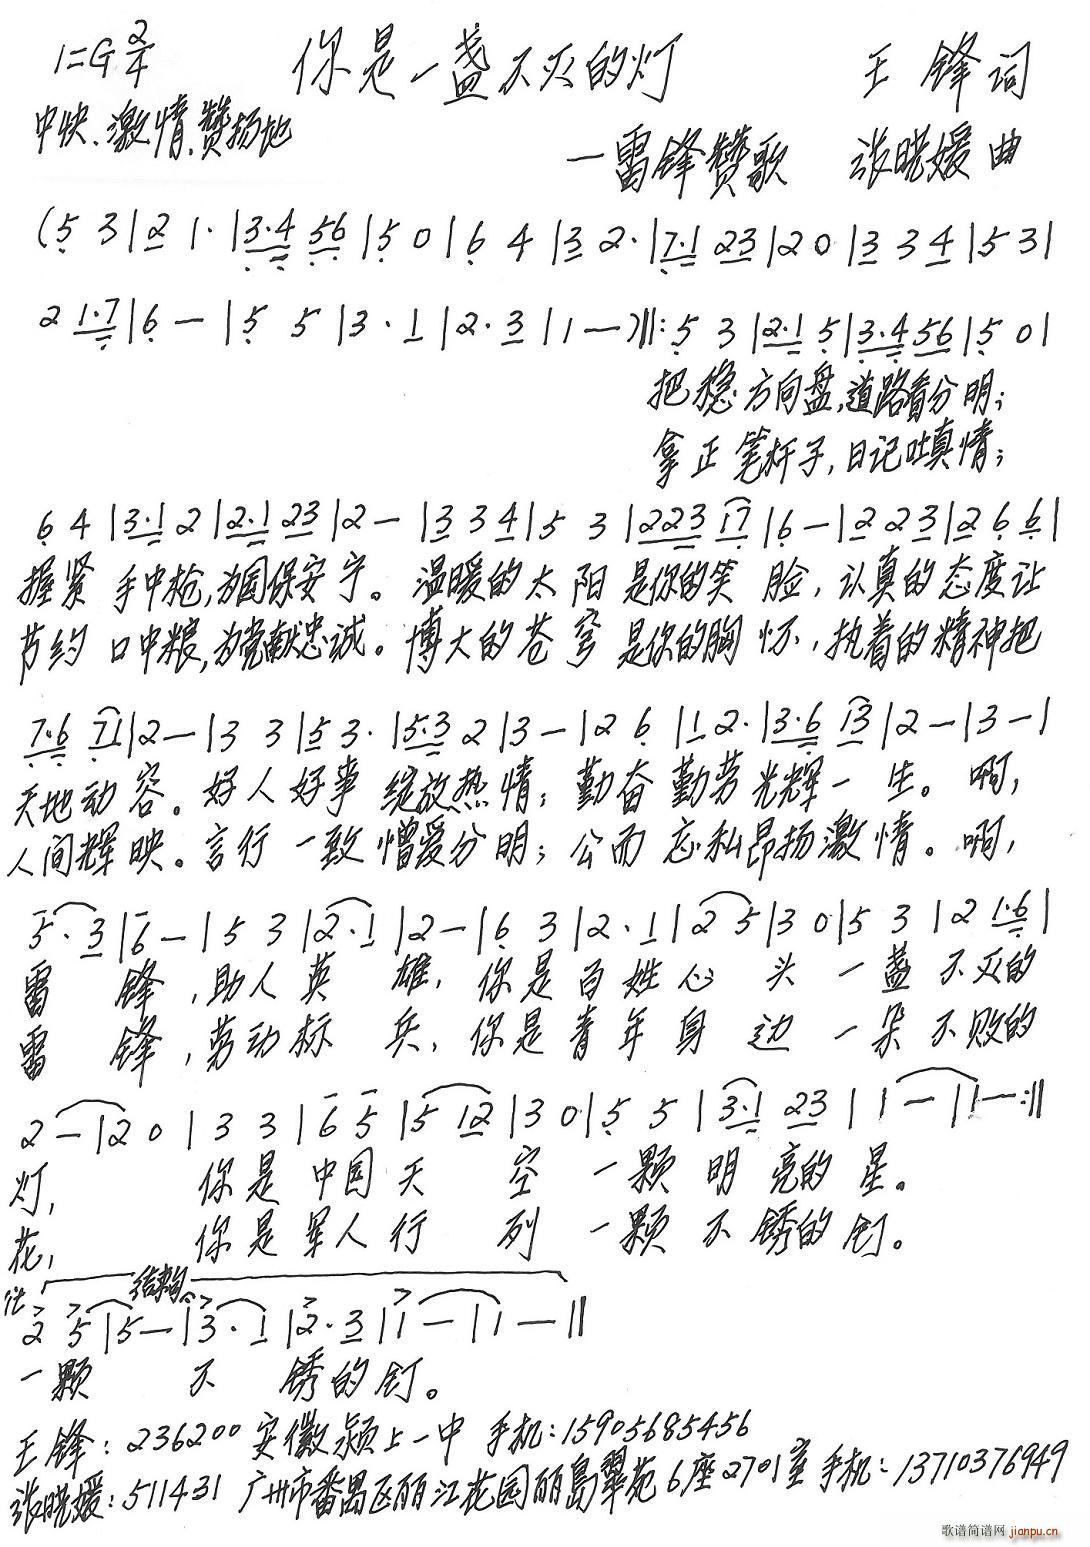 1=G 2/4 你是一盏不灭的灯 王锋词
中快、激情、赞扬地
一雷锋赞歌 张晓媛曲
(5 3|2 1·|3·4 56|5 0|6 4|3 2·|7·1 23|2 0|3 3 4|5 3|
2 1·7|6 —|5 5|3·1|2·3|1 —)‖:5 3|2·1 5|3·4 56|5 0|
把稳方向盘,道路看分明;
拿正笔杆子,日记吐真情;
6 4|3·1 2|2·1 23|2 —|3 3 4|5 3|223 17|6 —|2 2 3|2 6 6|
握紧手中枪,为国保安宁。温暖的太阳是你的笑脸,认真的态度让
节约口中粮,为党献忠诚。博大的苍穹是你的胸怀,执着的精神把
7·6 71|2 —|3 3|5 3·|5·3 2|3 —|2 6|1 2·|3·6 13|2 —|3 —|
天地动容。好人好事绽放热情;勤奋勤劳光辉一生。啊,
人间辉映。言行一致憎爱分明;公而忘私昂扬激情。啊,
5·3|6 —|5 3|2·1|2 —|6 3|2·1|2 5|3 0|5 3|2 1·6|
雷锋,助人英雄,你是百姓心头一盏不灭的
雷锋,劳动标兵,你是青年身边一朵不败的
2 —|2 0|3 3|6 5|5 12|3 0|5 5|3·1 23|1 —|1 —:‖
灯,你是中国天空一颗明亮的星。
花,你是军人行列一颗不锈的钉。
结束句
2 5|5 —|3·1|2·3|1 —|1 —‖
一颗不锈的钉。
王锋:236200 安徽颍上一中 手机:15905685456
张晓媛:511431 广州市番禺区丽江花园丽岛翠苑6座2701室 手机:13710376949
歌谱简谱网 jianpu.cn